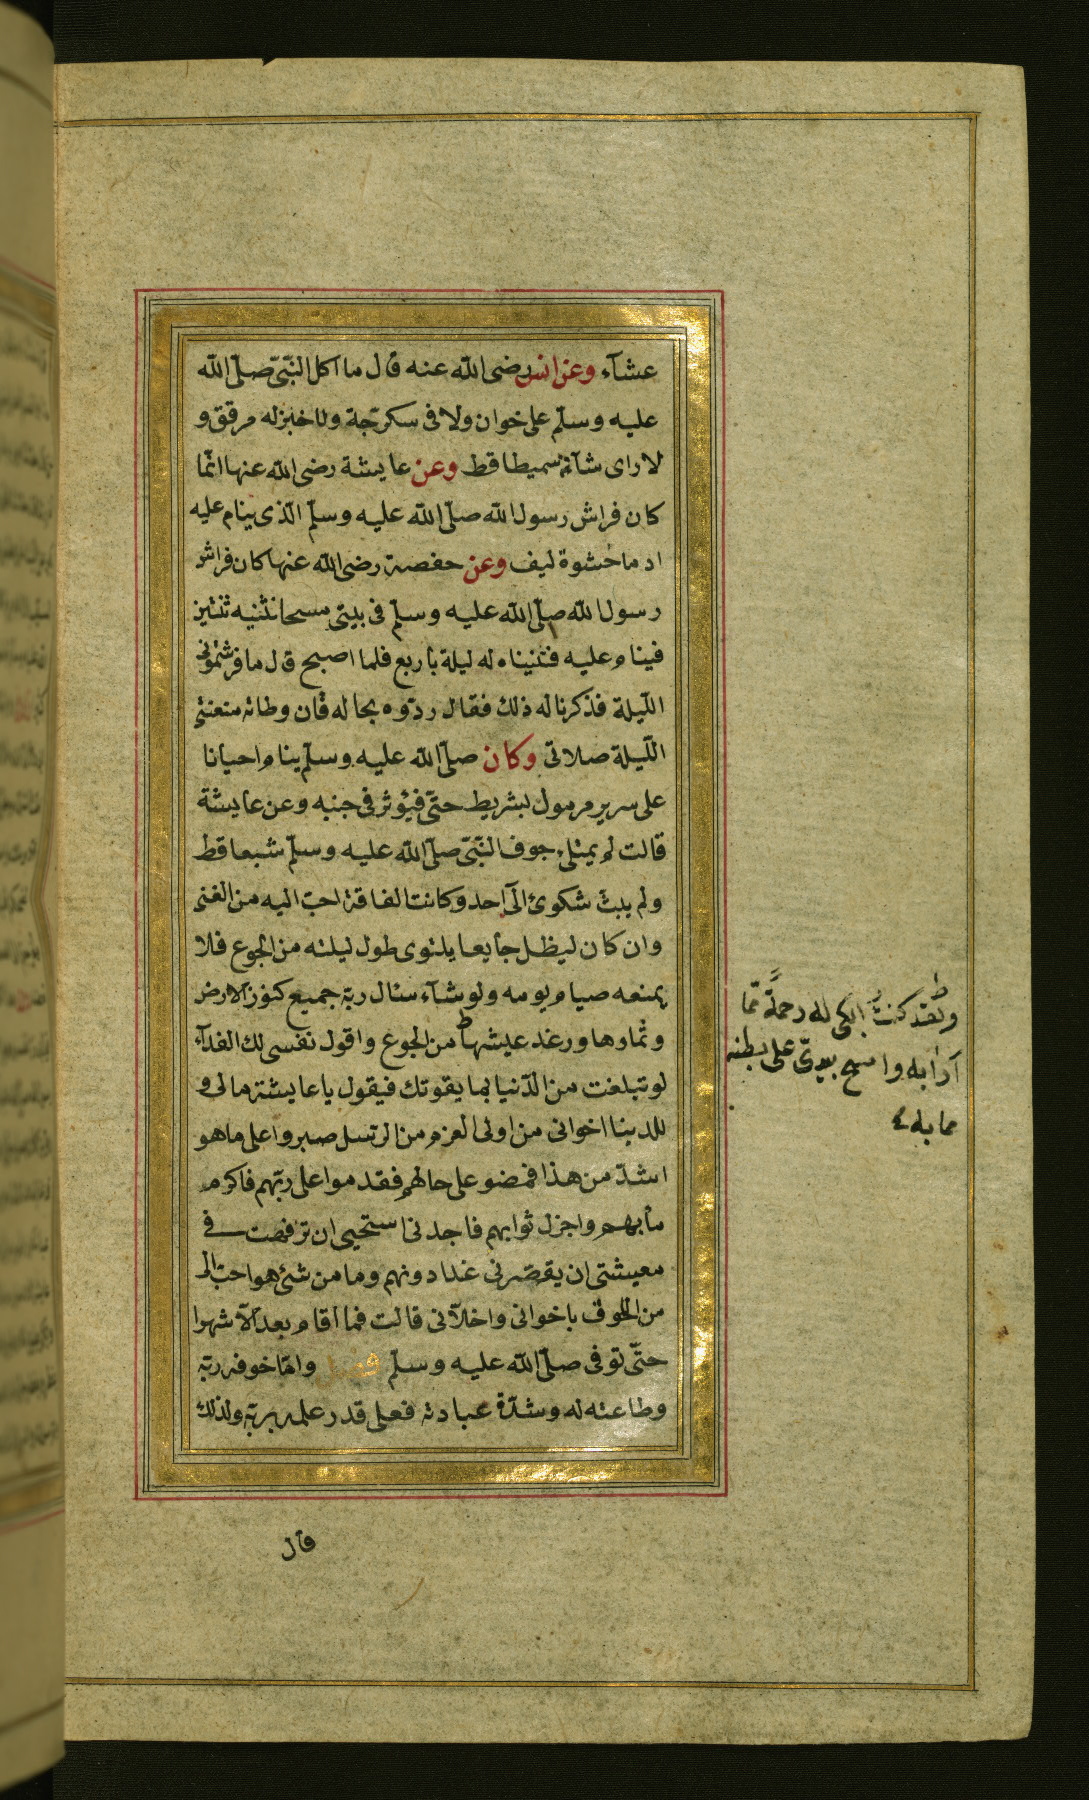 عشآء وعن انس رضى الله عنه قال ما اكل النّبىّ صلّى الله
عليه وسلّم على خوان ولا فى سكرجة ولا خبز له مرقق و
لا راى شاة سميطا قط وعن عايشة رضى الله عنها انّما
كان فراش رسول الله صلّى الله عليه وسلّم الّذى ينام عليه
ادما حشوة ليف وعن حفصة رضى الله عنها كان فراش
رسول الله صلّى الله عليه وسلّم فى بيتى مسحا نثنيه ثنتين
فينام عليه فثنيناه له ليلة باربع فلما اصبح قال ما فرشتمونى
اللّيلة فذكرنا له ذلك فقال ردّوه بحاله فان وطائه منعتنى
اللّيلة صلاتى وكان صلّى الله عليه وسلّم ينام احيانا
على سرير مرمول بشريط حتّى فيؤثر فى جنبه وعن عايشة
قالت لم يمتلئ جوف النّبىّ صلّى الله عليه وسلّم شبعا قط
ولم يبث شكوى الى احد وكانت الفاقة احبّ اليه من الغنى
وان كان ليظل جايعا يلتوى طول ليلته من الجوع فلا
يمنعه صيام يومه ولو شآء سئال ربّه جميع كنوز الارض
وثمارها ورغد عيشها من الجوع واقول نفسى لك الفدآء
لو تبلغت من الدّنيا بما يقوتك فيقول يا عايشة مالى و
للدينا اخوانى من اولى العزم من الرّسل صبروا على ما هو
اشدّ من هذا فمضو على حالهم فقدموا على ربّهم فاكرم
مأبهم واجزل ثوابهم فاجدنى استحيى ان ترفهت فى
معيشتى ان يقصّر بى غدا دونهم وما من شئ هو احبّ الى
من اللحوق باخوانى واخلآئى قالت فما اقام بعد الّا شهرا
حتّى توفى صلّى الله عليه وسلّم فصل وامّا خوفه ربّه
وطاعته له وشدّة عبادته فعلى قدر علمه بربّه ولذلك
ولقد كنت ابكى له رحمة ممّا
آرا به وامسح بيدى على بطنه
مما به
قال